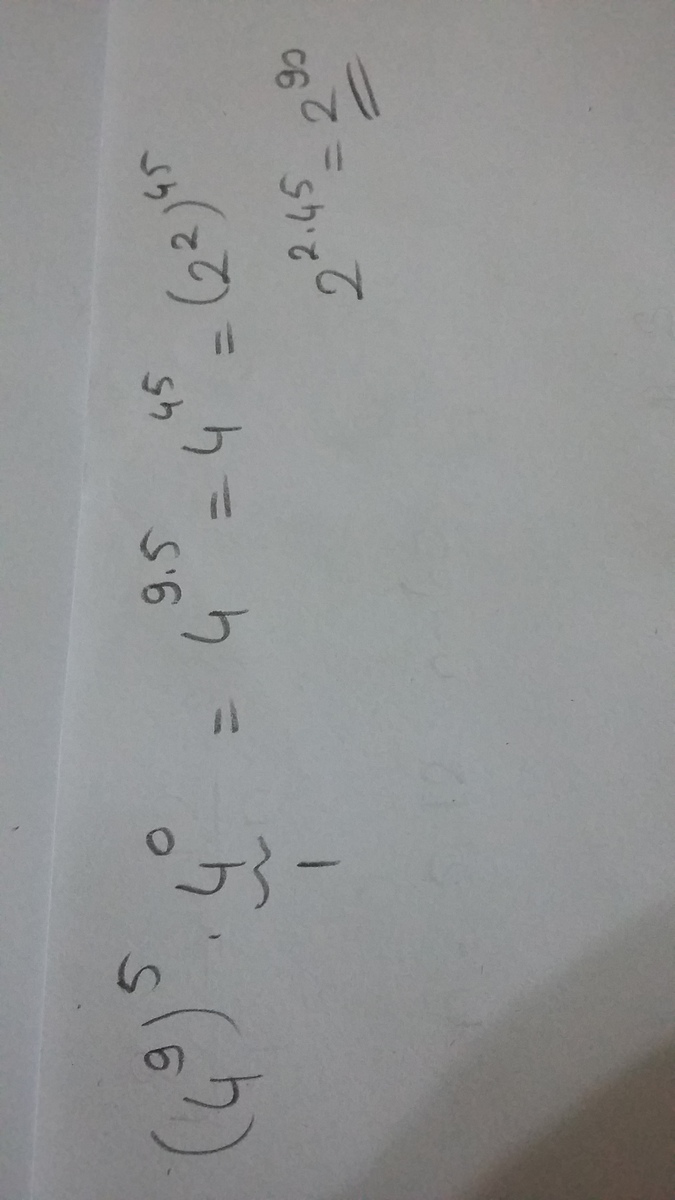 (4⁹)⁵ · 4⁰ = 4⁹·⁵ = 4⁴⁵ = (2²)⁴⁵
1
2²·⁴⁵ = 2⁹⁰